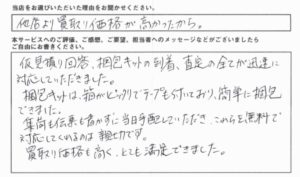 当店をお選びいただいた理由をお聞かせください。
他店より買取り価格が高かったから。
本サービスへのご評価、ご感想、ご要望、担当者へのメッセージなどがございましたら
ご自由にお書きください。
仮見積り回答、梱包キットの到着、査定の全てが迅速に
対応していただきました。
梱包キットは、箱がピッタリでテープも付いており、簡単に梱包
できました。
集荷も伝票も書かずに当日手配していただき、これらを無料で
対応してくれるのは親切です。
買取り価格も高く、とても満足できました。